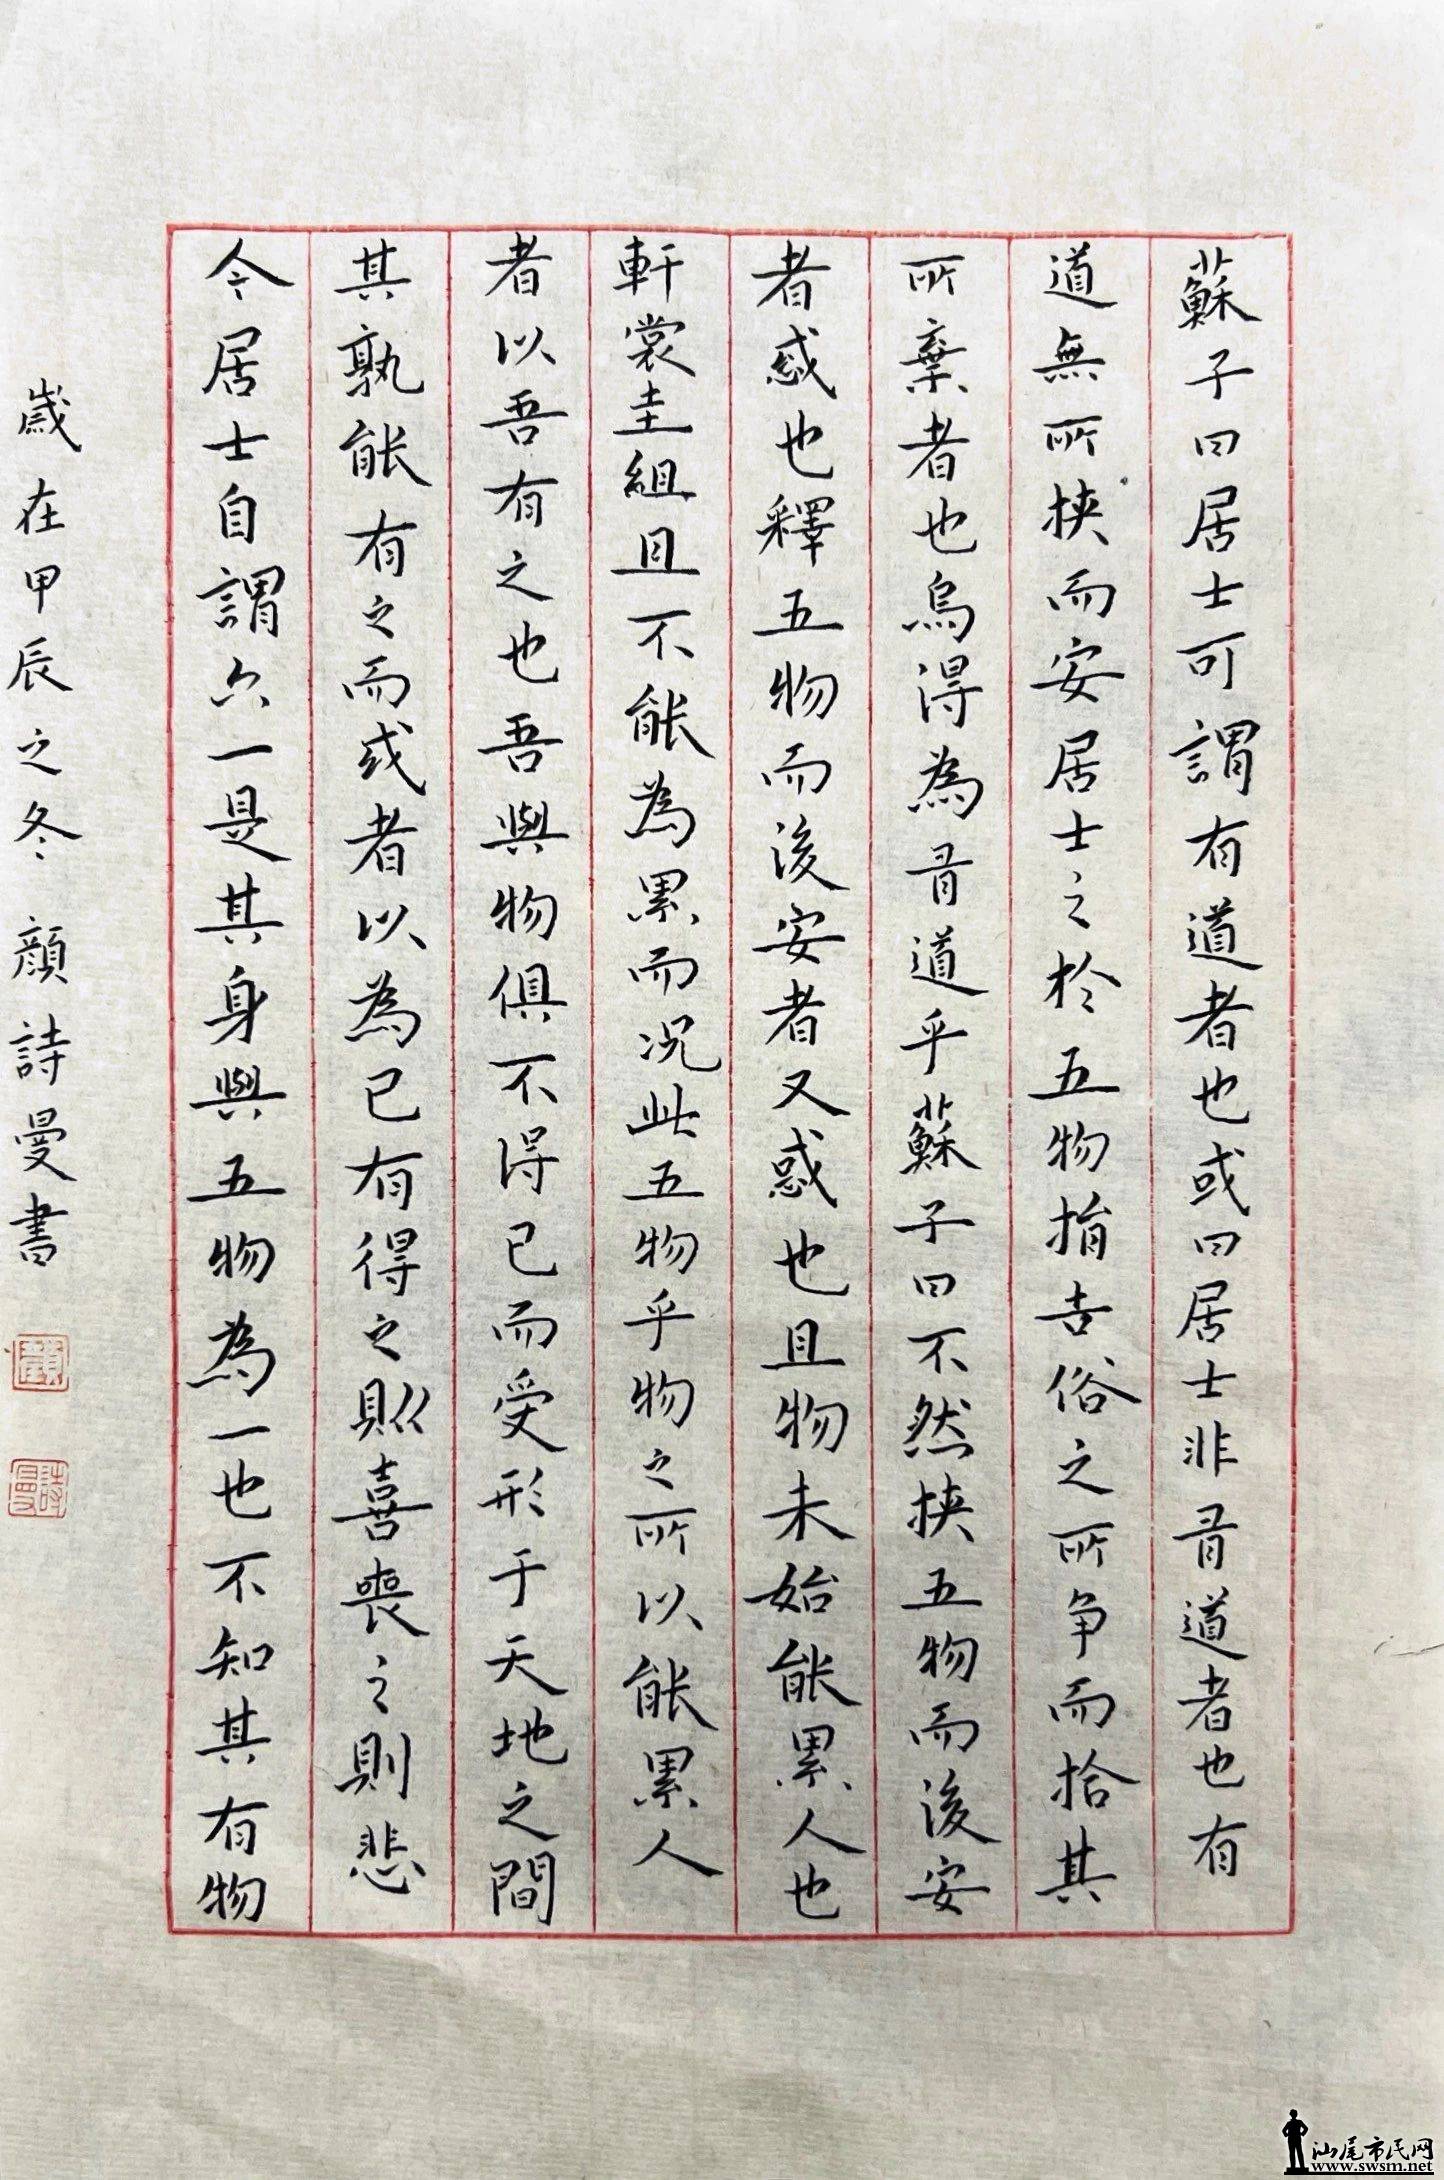 蘇子曰居士可謂有道者也或曰居士非有道者也有
道無所挾而安居士之於五物捐去俗之所争而拾其
所棄者也烏得為有道乎蘇子曰不然挾五物而後安
者惑也釋五物而後安者又惑也且物未始能累人也
軒裳圭組且不能為累而况此五物乎物之所以能累人
者以吾有之也吾與物俱不得已而受形于天地之間
其孰能有之而或者以為己有得之則喜喪之則悲
今居士自謂六一是其身與五物為一也不知其有物
歲在甲辰之冬 顔詩曼書
顔
詩曼
汕尾市民网
www.swsm.net